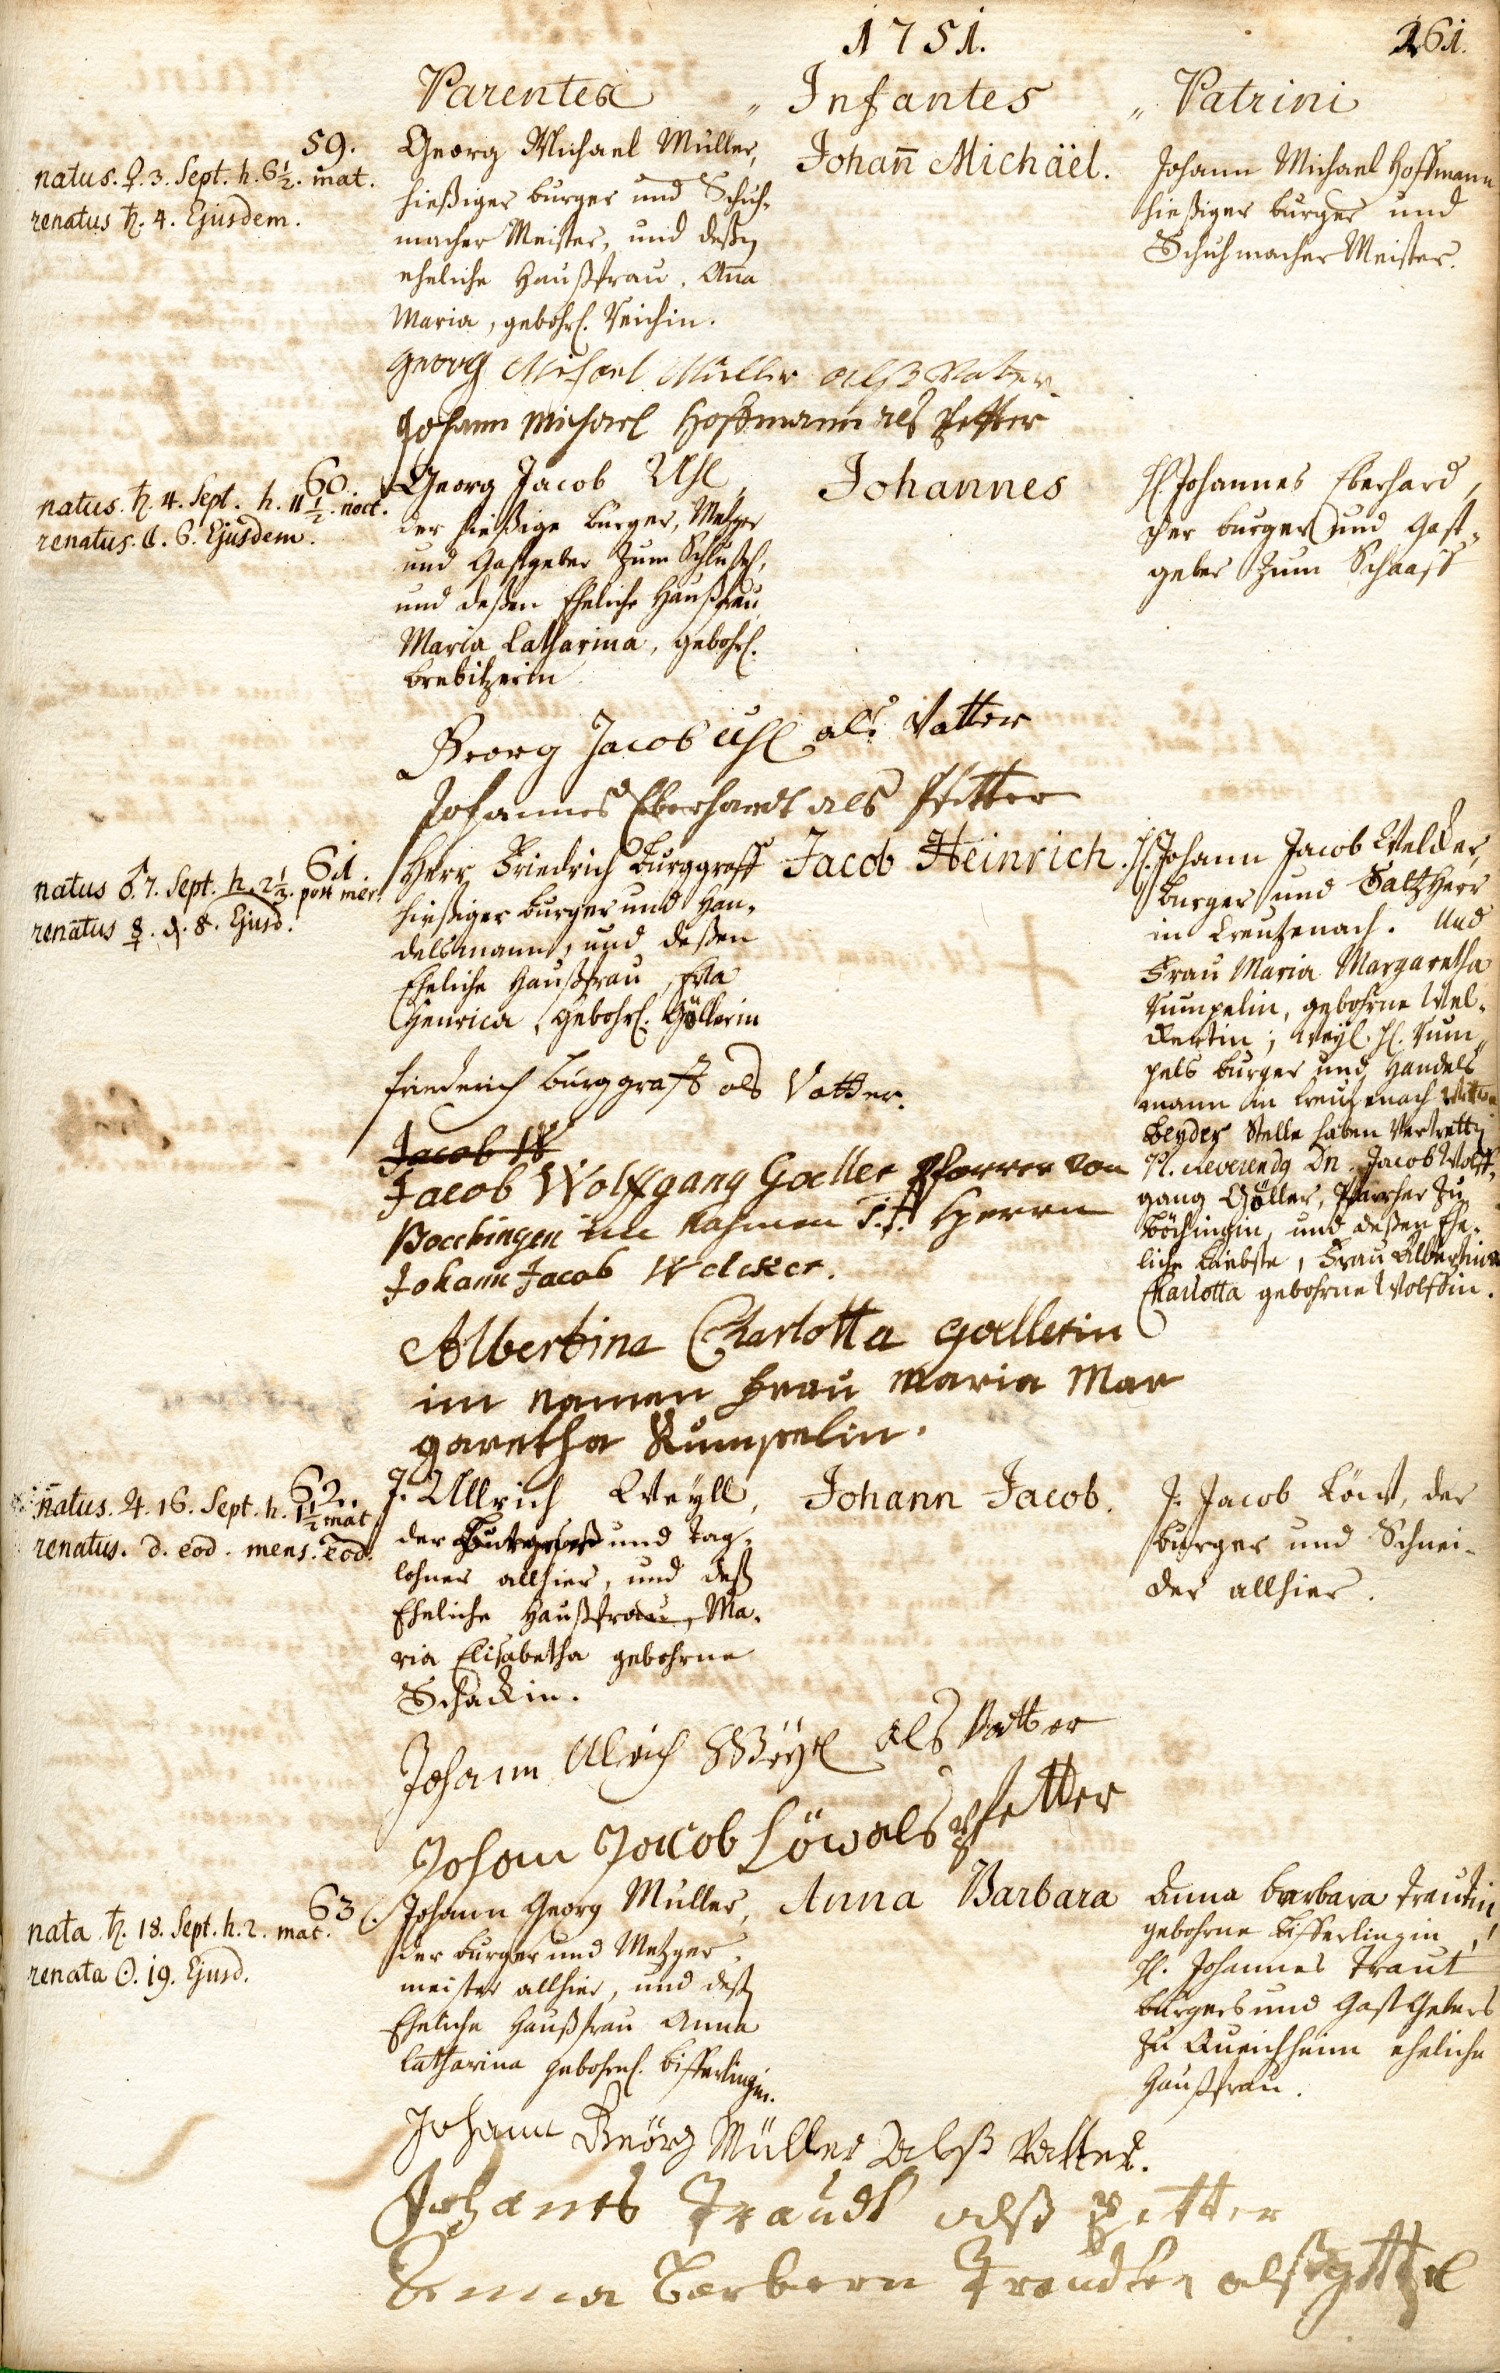 1751.
261.
Parentes " Infantes " Patrini
59.
natus. ♀. 3. Sept. h. 6½. mat.
renatus ♄. 4. Ejusdem.
Georg Michael Müller,
hießiger burger und Schuh-
macher Meister, und deßen
eheliche Haußfrau, Aña
Maria, gebohrl.
Johañ Michäel.
Johann Michael Hoffmann
hießiger burger und
Schuhmacher Meister.
Georg Michael Müller alß Vater
Johann Michael Hoffmann als Petter
60.
natus. ♄. 4. Sept. h. 11½. noct.
renatus. ☾. 6. Ejusdem.
Georg Jacob Uhl,
der hießige burger, Metzger
und Gastgeber zum Schlüßel,
und deßen Eheliche Haußfrau,
Maria Catharina, gebohrl.
Brebitzerin
Johannes
H. Johannes Eberhard,
der burger und Gast-
geber zum Schaaff
Georg Jacob Uhl als Vatter
Johannes Eberhardt als Pfetter
61.
natus ♂. 7. Sept. h. 2½. post mer.
renatus ☿. d. 8. Ejusd.
Herr Friedrich Burggraff
hießiger burger und Han-
delsmann, und deßen
Eheliche Haußfrau, Eva
Henrica, gebohrl. Göllerin
Jacob Heinrich.
H. Johann Jacob Welcker,
burger und Saltz Herr
in Creutzenach. Und
Frau Maria Margaretha
Rumpelin, gebohrne Wel-
ckertin; weyl. H. Rum-
pels burger und Handels
mann in Creutzenach Wittwe
beyder Stelle haben Vertretten
Pl. Reverendg Dn. Jacob Wolff-
gang Göller, Pfarrher zu
Böchingen, und deßen Ehe-
liche Liebste, Frau Albertina
Charlotta gebohrne Wolffin.
Friederich Burggraff als Vatter.
Jacob W
Jacob Wolffgang Goeller Pfarrer von
Boechingen im Nahmen T.t. Herrn
Johann Jacob Welcker.
Albertina Charlotta Goellerin
im namen Frau Maria Mar
garetha Rumpelin.
62.
natus. ♃. 16. Sept. h. 1½ mat
renatus. d. eod. mens. eod.
J. Ullrich Weyll,
der und Tag-
löhner allhier, und deßen
Eheliche Haußfrau, Ma-
ria Elisabetha gebohrne
Schackin.
Johann Jacob.
J. Jacob Löw, der
burger und Schnei-
der allhier.
Johann Ulrich Weyl als Vatter
Johan Jacob Löw als Pfetter
63.
nata ♄. 18. Sept. h. 2. mat.
renata ☉. 19. Ejusd.
Johann Georg Müller,
der burger und Metzger-
meister allhier, und deßen
Eheliche Haußfrau Anna
Catharina gebohrl. Bifferlingin.
Anna Barbara
Anna barbara Trautin,
gebohrne Bifferlingin,
H. Johannes Traut
burgers und Gast Gebers
zu Queichheim eheliche
Haußfrau.
Johann Geörg Müller alß Vatter.
Johanes Traudt alß Petter